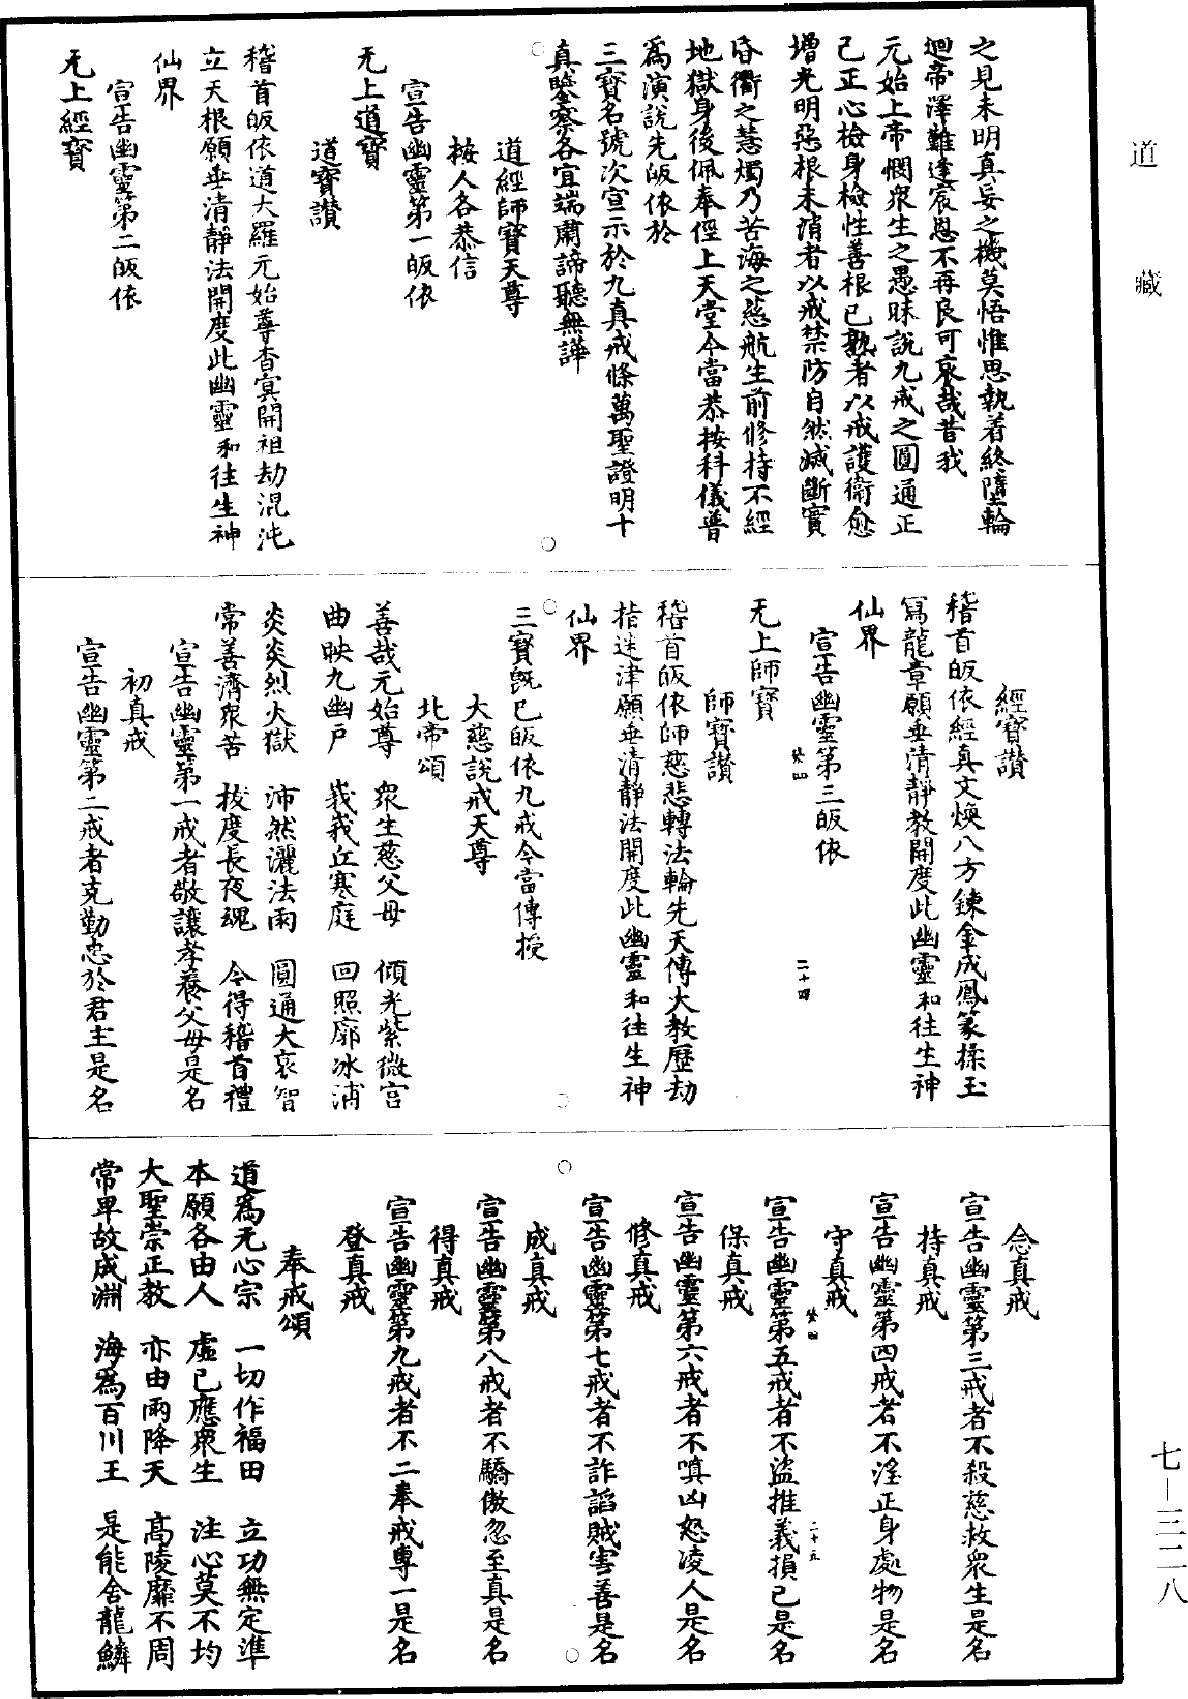 之見未明真妄之機莫悟惟思執着終墮輪
迴帝澤難逢宸恩不再良可哀哉昔我
元始上帝憫衆生之愚昧說九戒之圓通正
己正心檢身檢性善根已熟者以戒護衛愈
增光明惡根未消者以戒禁防自然滅斷實
昏衢之慧燭乃苦海之慈航生前修持不經
地獄身後佩奉徑上天堂今當恭按科儀普
為演說先皈依於
三寶名號次宣示於九真戒條萬聖證明十
真鑒察各宜端肅諦聽無譁
道經師寶天尊
按人各恭信
宣告幽靈第一皈依
无上道寶
道寶讃
稽首皈依道大羅元始尊杳冥開祖劫混沌
立天根願垂清靜法開度此幽靈和往生神
仙界
宣告幽靈第二皈依
无上經寶
經寶讃
稽首皈依經真文煥八方鍊金成鳳篆揉玉
寫龍章願垂清靜教開度此幽靈和往生神
仙界
宣告幽靈第三皈依
无上師寶
師寶讃
稽首皈依師慈悲轉法輪先天傳大教歷劫
指迷津願垂清靜法開度此幽靈和往生神
仙界
三寶既已皈依九戒今當傳授
大慈說戒天尊
北帝頌
善哉元始尊 衆生慈父母 傾光紫微宫
曲映九幽戶 峩峩丘寒庭 回照廓冰浦
炎炎烈火獄 沛然灑法雨 圓通大哀智
常善濟衆苦 拔度長夜魂 今得稽首禮
宣告幽靈第一戒者敬讓孝養父母是名
初真戒
宣告幽靈第二戒者克勤忠於君主是名
念真戒
宣告幽靈第三戒者不殺慈救衆生是名
持真戒
宣告幽靈第四戒者不淫正身處物是名
守真戒
宣告幽靈第五戒者不盜推義損已是名
保真戒
宣告幽靈第六戒者不嗔凶怒凌人是名
修真戒
宣告幽靈第七戒者不詐謟賊害善是名
成真戒
宣告幽靈第八戒者不驕傲忽至真是名
得真戒
宣告幽靈第九戒者不二奉戒專一是名
登真戒
奉戒頌
道為无心宗 一切作福田 立功無定準
本願各由人 虛已應衆生 注心莫不均
大聖崇正教 亦由雨降天 高陵靡不周
常卑故成淵 海為百川王 是能舍龍鱗
道 藏
七—三二八